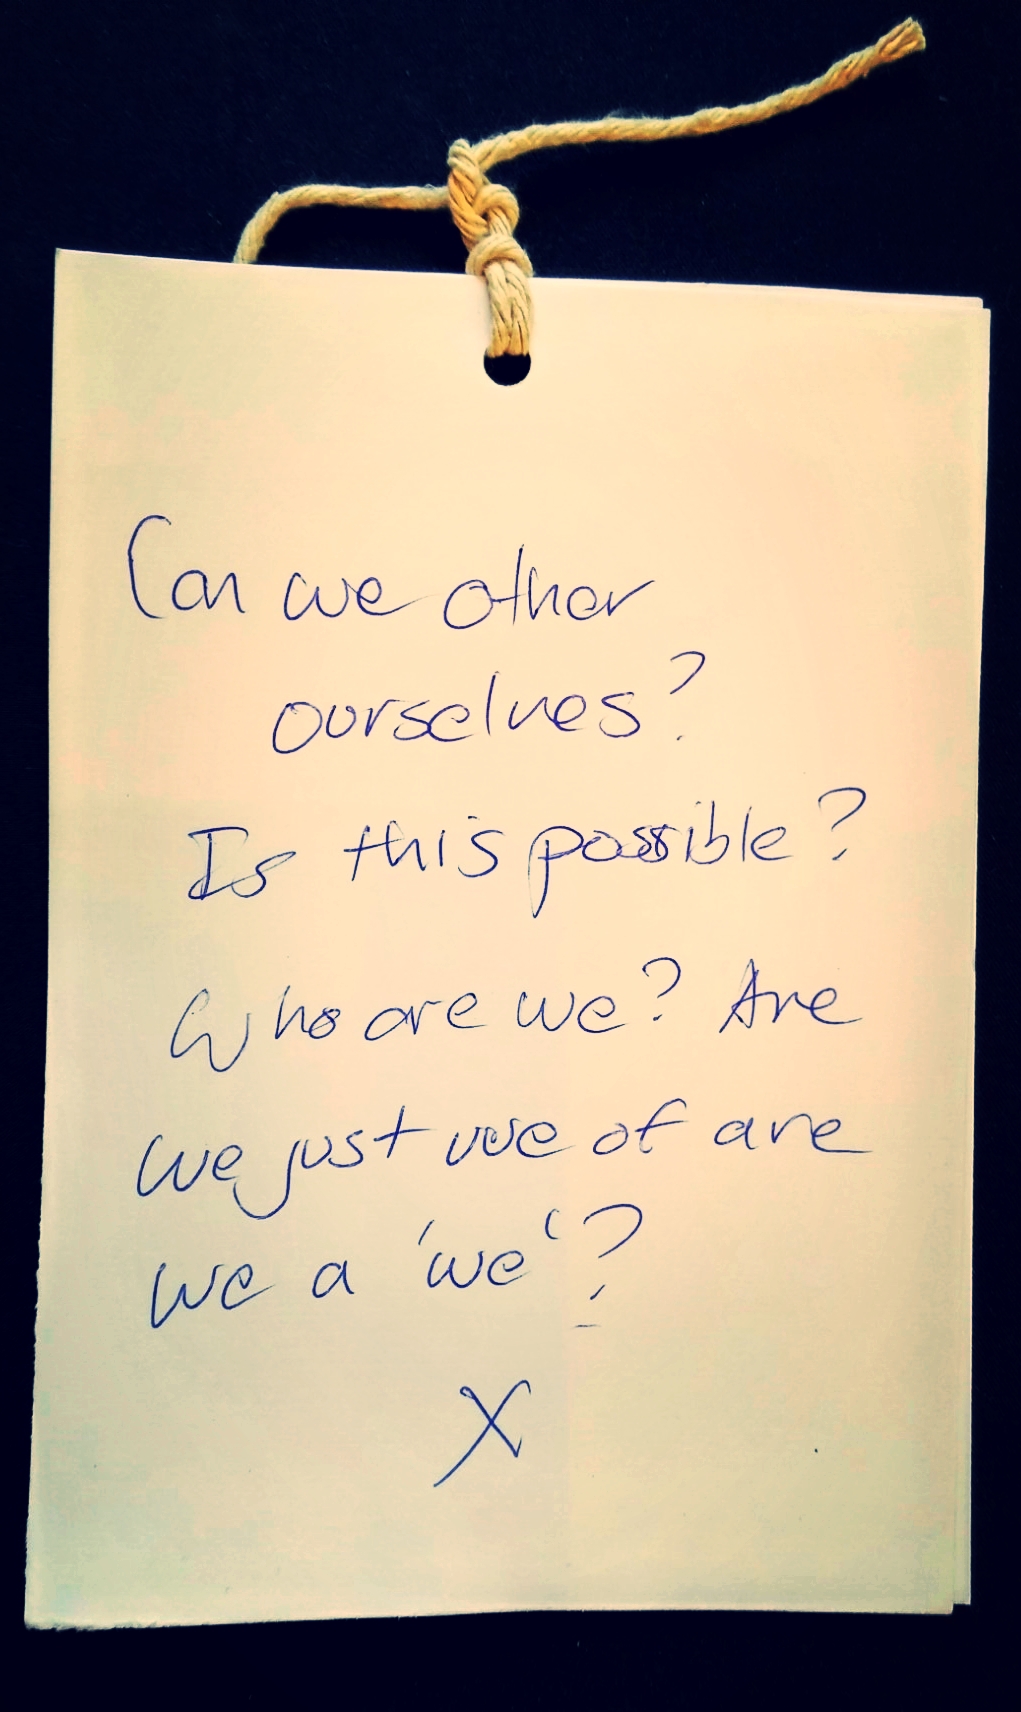 Can we other
ourselves?
Is this possible?
Who are we? Are
we just we of are
we a 'we'?
X